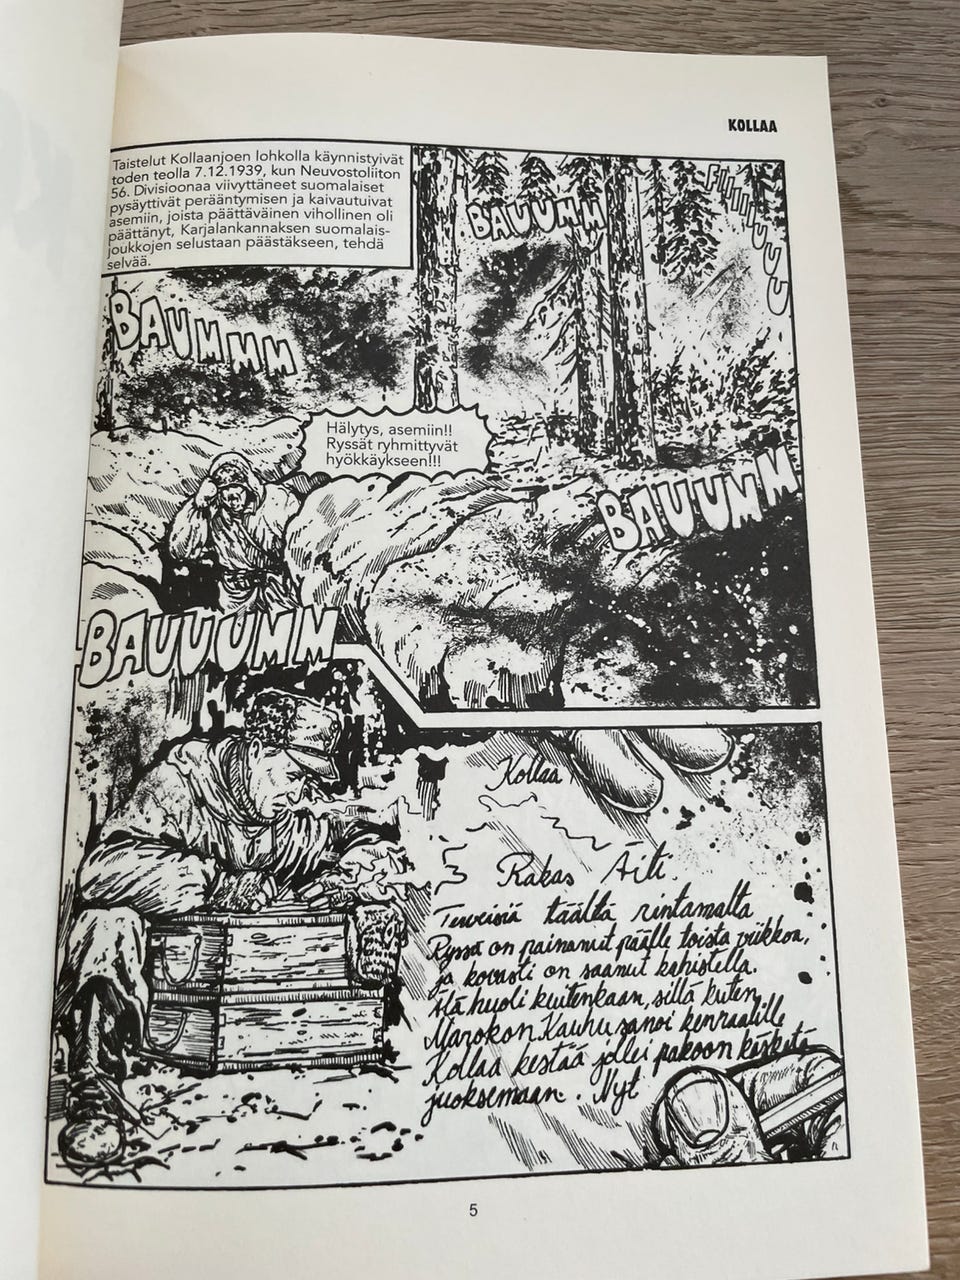 KOLLAA
Taistelut Kollaanjoen lohkolla käynnistyivät
toden teolla 7.12.1939, kun Neuvostoliiton
56. Divisioonaa viivyttäneet suomalaiset
pysäyttivät perääntymisen ja kaivautuivat
asemiin, joista päättäväinen vihollinen oli
päättänyt, Karjalankannaksen suomalais-
joukkojen selustaan päästäkseen, tehdä
selvää.
BAUUMM
FIIIIIIUUUU
BAUMMM
Hälytys, asemiin!!
Ryssät ryhmittyvät
hyökkäykseen!!!
BAUUMM
BAUUUMM
Kollaa
Rakas Äiti.
Terveisiä täältä rintamalta
Ryssä on painanut päälle toista viikkoa,
ja kovasti on saanut kahistella.
Älä huoli kuitenkaan, sillä kuten
Marokon Kauhu sanoi kenraalille
Kollaa kestää jollei pakoon käsketä
juoksemaan. Nyt
5